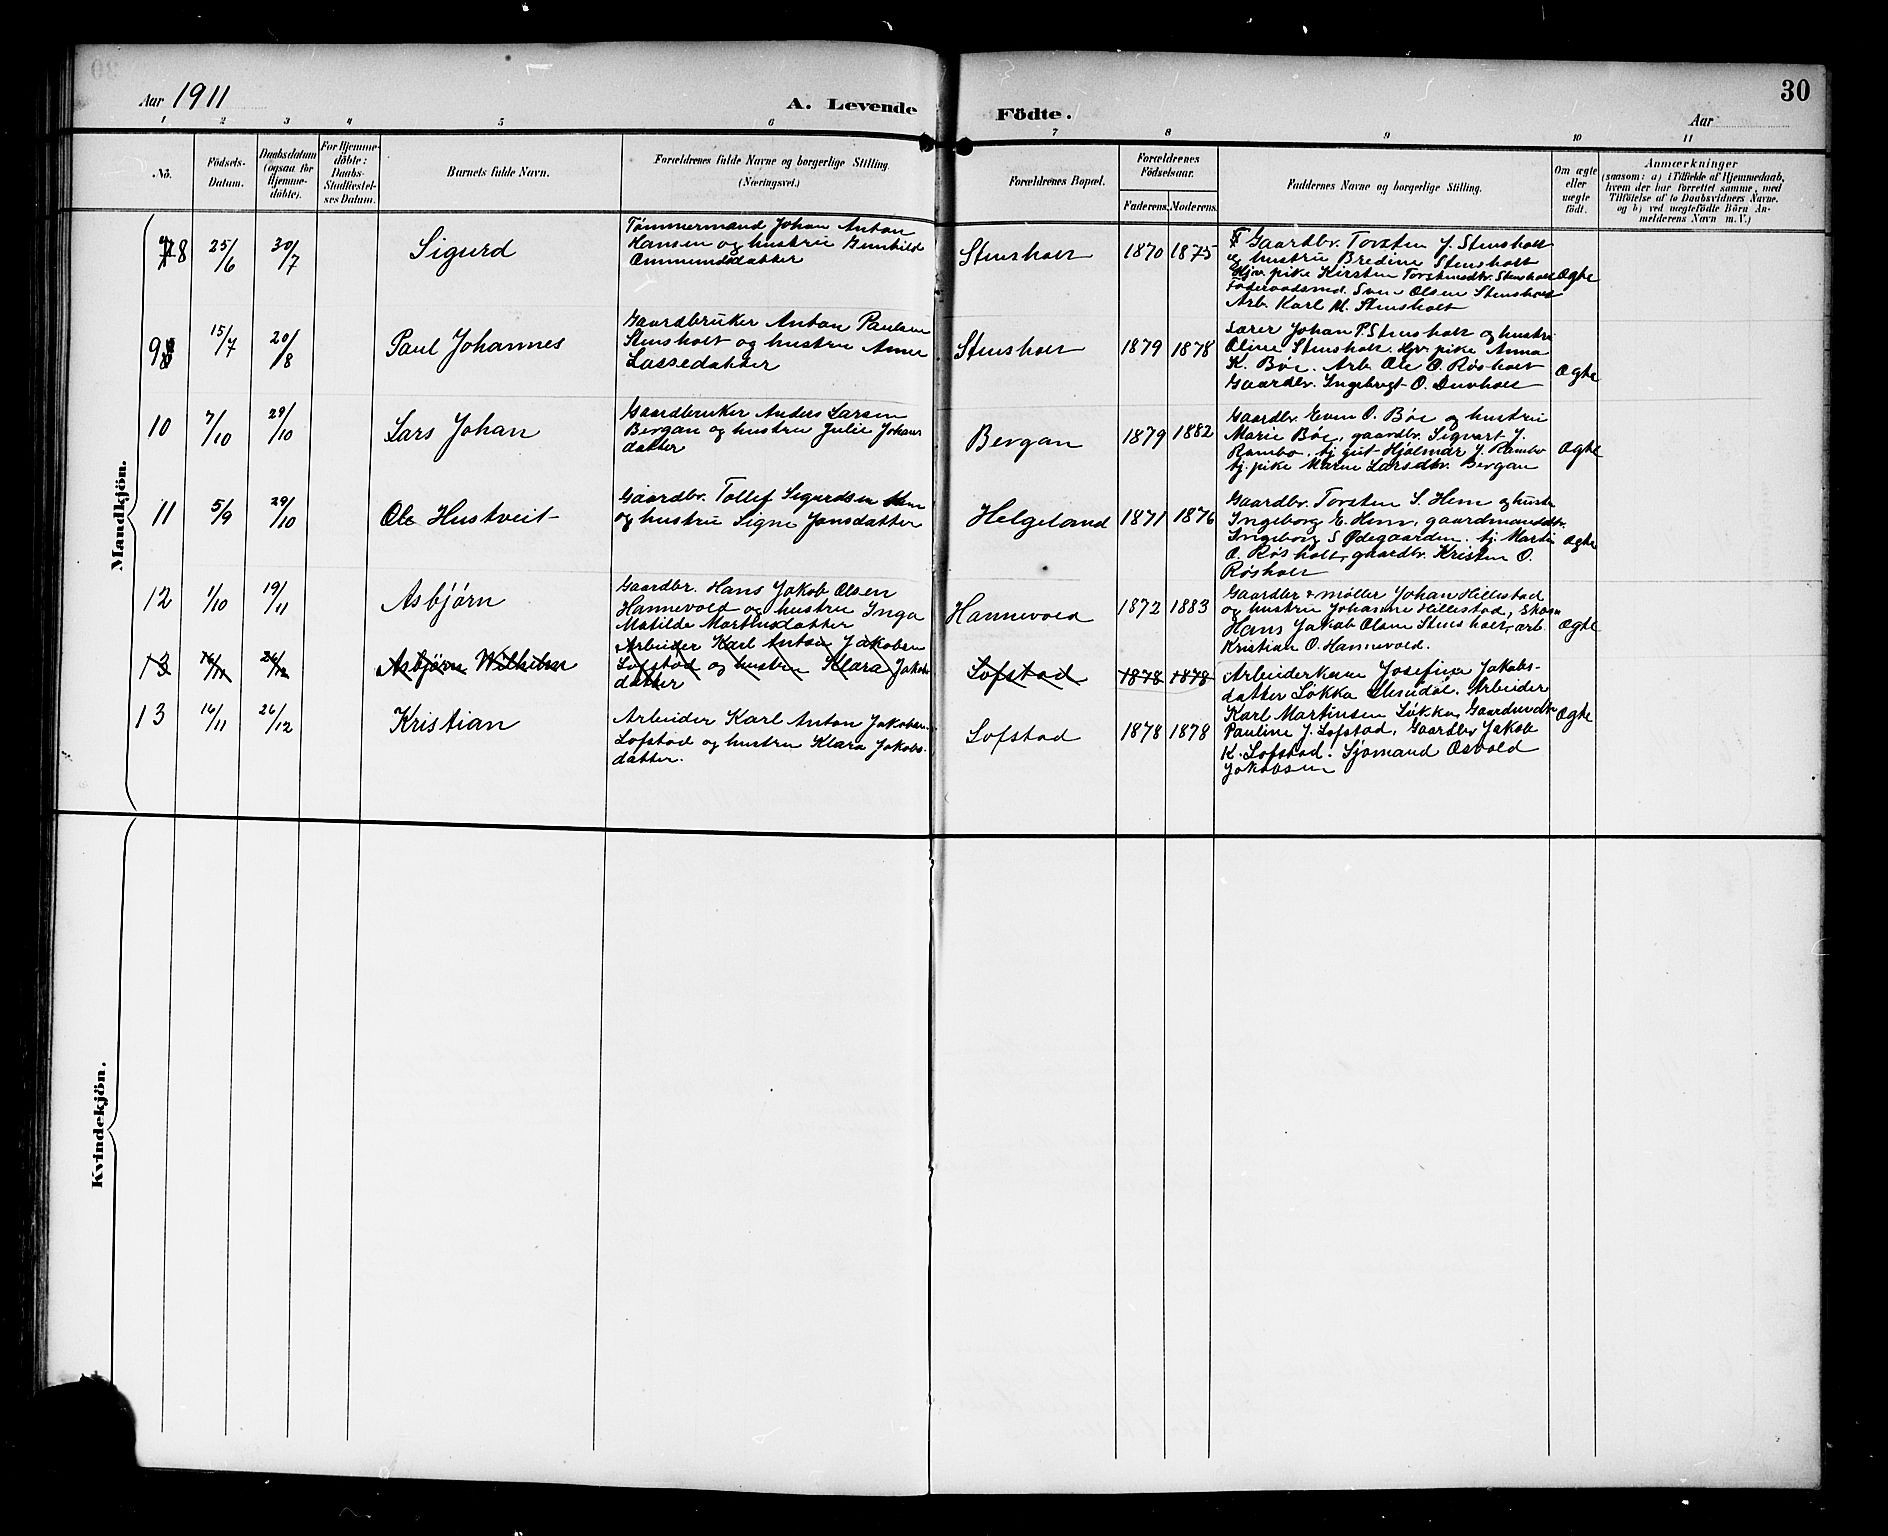 30
Aar 1911
A. Levende Födte.
Aar
1 2 3 4 5 6 7 8 9 10 11
Nö.
Födsels-
Datum.
Daabsdatum
(ogsaa for
Hjemme-
döbte).
For Hjemme-
döbte:
Daabs-
Stadfæstel-
ses Datum.
Barnets fulde Navn.
Forældrenes fulde Navne og borgerlige Stilling.
(Næringsvei.)
Forældrenes Bopæl.
Forældrenes
Födselsaar.
Faderens. Moderens.
Faddernes Navne og borgerlige Stilling.
Om ægte
eller
uægte
födt.
Anmærkninger
(saasom: a) i Tilfælde af Hjemmedaab,
hvem der har forrettet samme, med
Tilföielse af to Daabsvidners Navne.
og b) ved uægtefödte Börn An-
melderens Navn m. V.)
Mandkjön.
8 25/6 30/7 Sigurd
Tømmermand Johan Anton
Hansen og hustru Gunhild
Ommundsdatter
Stensholt 1870 1875
Gaardbr. Torsten J. Stensholt
og hustru Bredine Stensholt
Hjv. pike Kirsten Torstensdtr. Stensholt
Föderaadsmd. Sven Olsen Stensholt
Arb. Karl M. Stensholt
Ægte
9 15/7 20/8 Paul Johannes
Gaardbruker Anton Paulsen
Stensholt og hustru Anne
Lassedatter
Stensholt 1879 1878
Lærer Johan P. Stensholt og hustru
Oline Stensholt. Hjv. pike Anna
K. Bøe. Arb. Ole O. Røsholt
Gaardbr. Ingebregt O.
Ægte
10 7/10 29/10 Lars Johan
Gaardbruker Anders Larsen
Bergan og hustru Julie Johans
datter
Bergan 1879 1882
Gaardbr. Even O. Bøe og hustru
Marie Bøe, gaardbr. Sigvart J.
Rambo. tj. gut Hjalmar J. Rambo
tj. pike Marie Larsdtr. Bergan
Ægte
11 5/9 29/10 Ole Hustveit
Gaardbr. Tollef Sigurdsen Hem
og hustru Signe Jonsdatter
Helgeland 1871 1876
Gaardbr. Torsten S. Hem og hustru
Ingeborg E. Hem, gaardmanddtr.
Ingeborg S Ødegaarden. tj. Martin
O. Røsholt, gaardbr. Kristen O.
Røsholt
Ægte
12 1/10 19/11 Asbjørn
Gaardbr. Hans Jakob Olsen
Hannevold og hustru Inga
Matilde Martinsdatter
Hannevold 1872 1883
Gaardbr & møller Johan Hillestad
og hustru Johanne Hillestad, Skom.
Hans Jakob Olsen Stensholt, arb.
Kristian O. Hannevold.
Ægte
13 16/11 26/12 Asbjørn Wilhelm
Arbeider Karl Anton Jakobsen
Lofstad og hustru Klara Jakobs
datter
Lofstad 1878 1878
13 16/11 26/12 Kristian
Arbeider Karl Anton Jakobsen
Lofstad og hustru Klara Jakobs-
datter.
Lofstad 1878 1878
Arbeiderkone Josefine Jakobs-
datter Løkka Arbeider
Karl Martinsen Løkka, Gaardmdtr
Pauline J. Lofstad, Gaardbr Jakob
K. Lofstad. Sjømand Osvald
Jakobsen
Ægte
Kvindekjön.